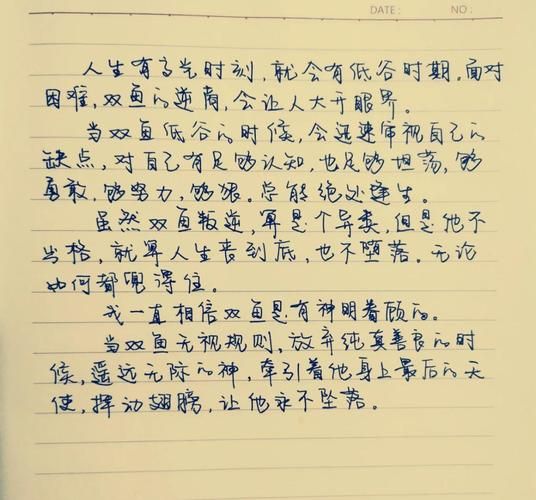 DATE: NO:
人生有高光时刻,就会有低谷时期。面对
困难,双鱼的逆商,会让人大开眼界。
当双鱼低谷的时候,会迅速审视自己的
缺点,对自己有足够认知,也足够坦荡,够
勇敢,够努力,够狠。总能绝处逢生。
虽然双鱼叛逆,算是个异类,但是他不
出格,就算人生丧到底,也不堕落。无论
如何都兜得住。
我一直相信双鱼是有神明眷顾的。
当双鱼无视规则,放弃纯真善良的时
候,遥远无际的神,牵引着他身上最后的天
使,挥动翅膀,让他永不坠落。